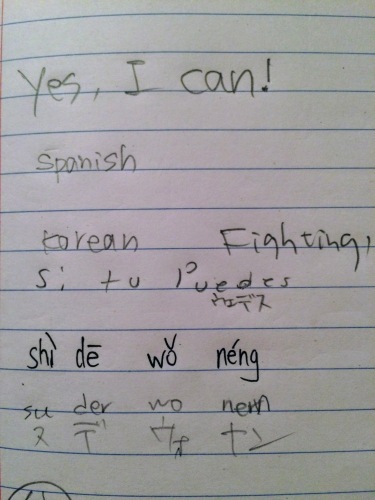 Yes, I can!
Spanish
Korean Fighting,
si tu Puedes
ウェデス
shì dē wǒ néng
su der wo nern
ス デ ウォ ナン